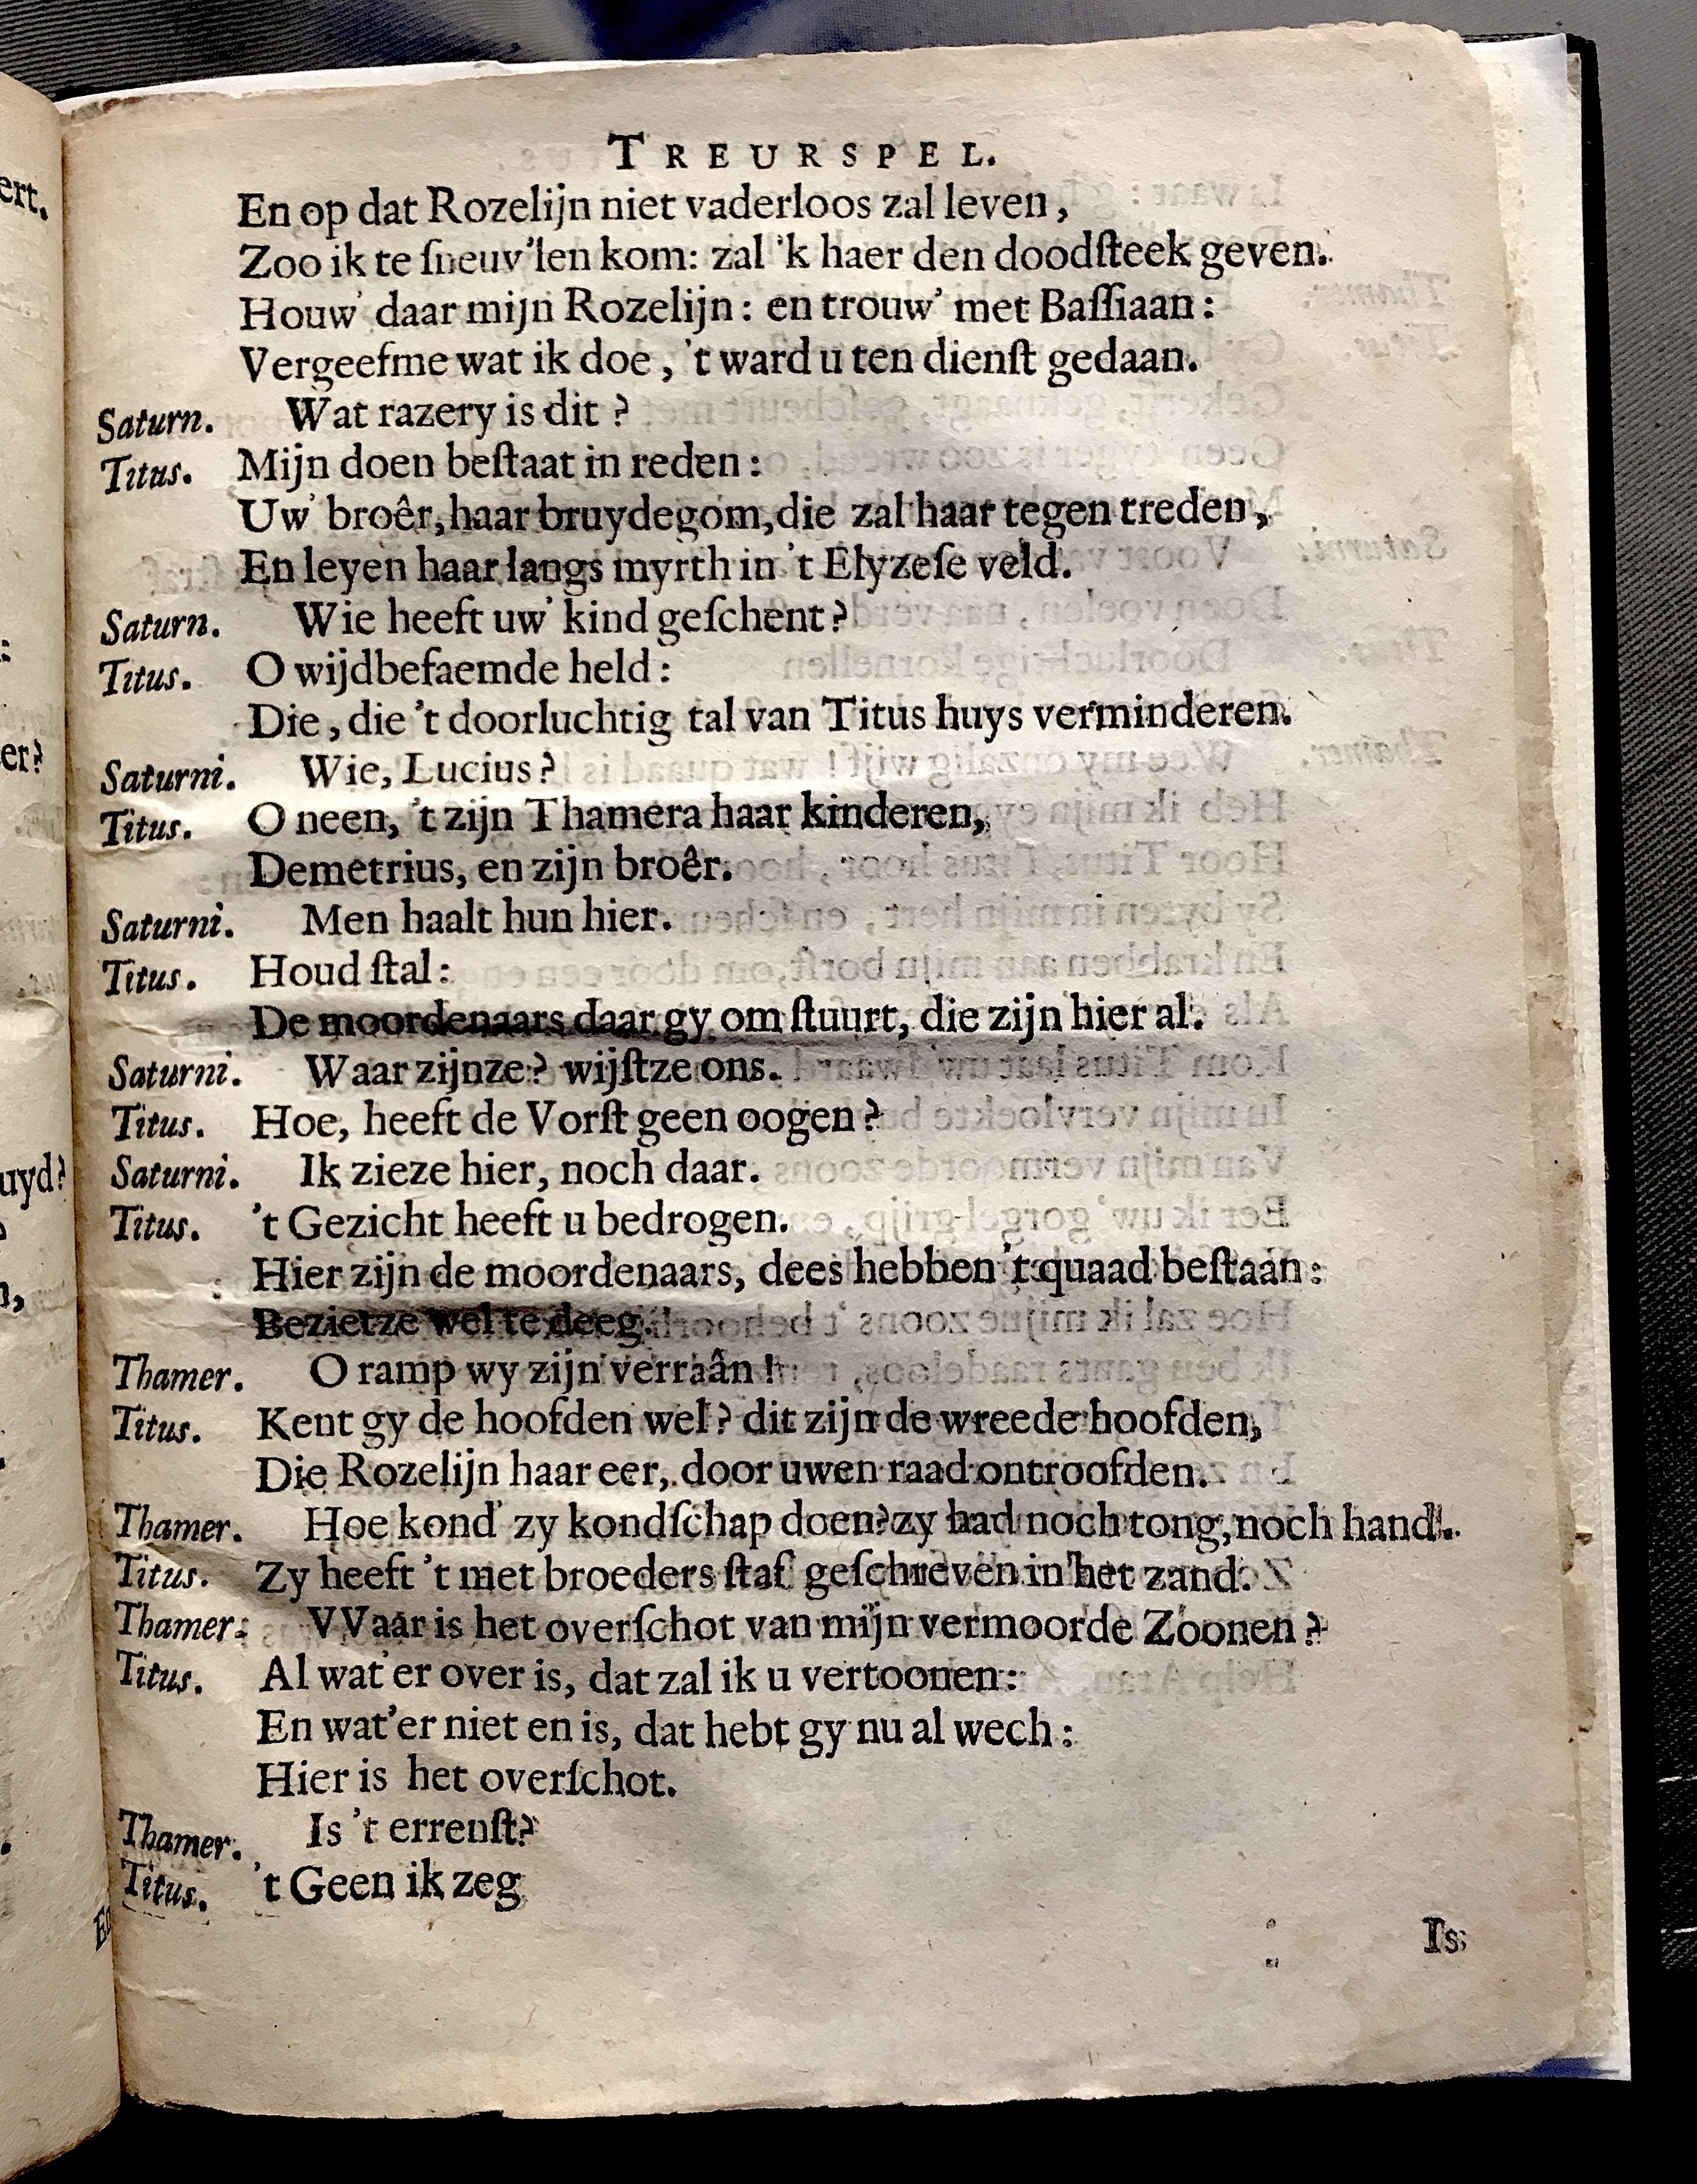 TREURSPEL.
En op dat Rozelijn niet vaderloos zal leven,
Zoo ik te ſneuv'len kom: zal 'k haer den doodſteek geven.
Houw' daar mijn Rozelijn: en trouw' met Baſſiaan:
Vergeefme wat ik doe, 't ward u ten dienſt gedaan.
Saturn. Wat razery is dit?
Titus. Mijn doen beſtaat in reden:
Uw' broêr, haar bruydegom, die zal haar tegen treden,
En leyen haar langs myrth in 't Elyzeſe veld.
Saturn. Wie heeft uw' kind geſchent?
Titus. O wijdbefaemde held:
Die, die 't doorluchtig tal van Titus huys verminderen.
Saturni. Wie, Lucius?
Titus. O neen, 't zijn Thamera haar kinderen,
Demetrius, en zijn broêr.
Saturni. Men haalt hun hier.
Titus. Houd ſtal:
De moordenaars daar gy om ſtuurt, die zijn hier al.
Saturni. Waar zijnze? wijſtze ons.
Titus. Hoe, heeft de Vorſt geen oogen?
Saturni. Ik zieze hier, noch daar.
Titus. 't Gezicht heeft u bedrogen.
Hier zijn de moordenaars, dees hebben 't quaad beſtaan:
Bezietze wel te deeg.
Thamer. O ramp wy zijn verraân!
Titus. Kent gy de hoofden wel? dit zijn de wreede hoofden,
Die Rozelijn haar eer, door uwen raad ontroofden.
Thamer. Hoe kond' zy kondſchap doen? zy had noch tong, noch hand.
Titus. Zy heeft 't met broeders ſtaf geſchreven in het zand.
Thamer. VVaar is het overſchot van mijn vermoorde Zoonen?
Titus. Al wat'er over is, dat zal ik u vertoonen:
En wat'er niet en is, dat hebt gy nu al wech:
Hier is het overſchot.
Thamer. Is 't errenſt?
Titus. 't Geen ik zeg
Is
ert.
er?
uyd?